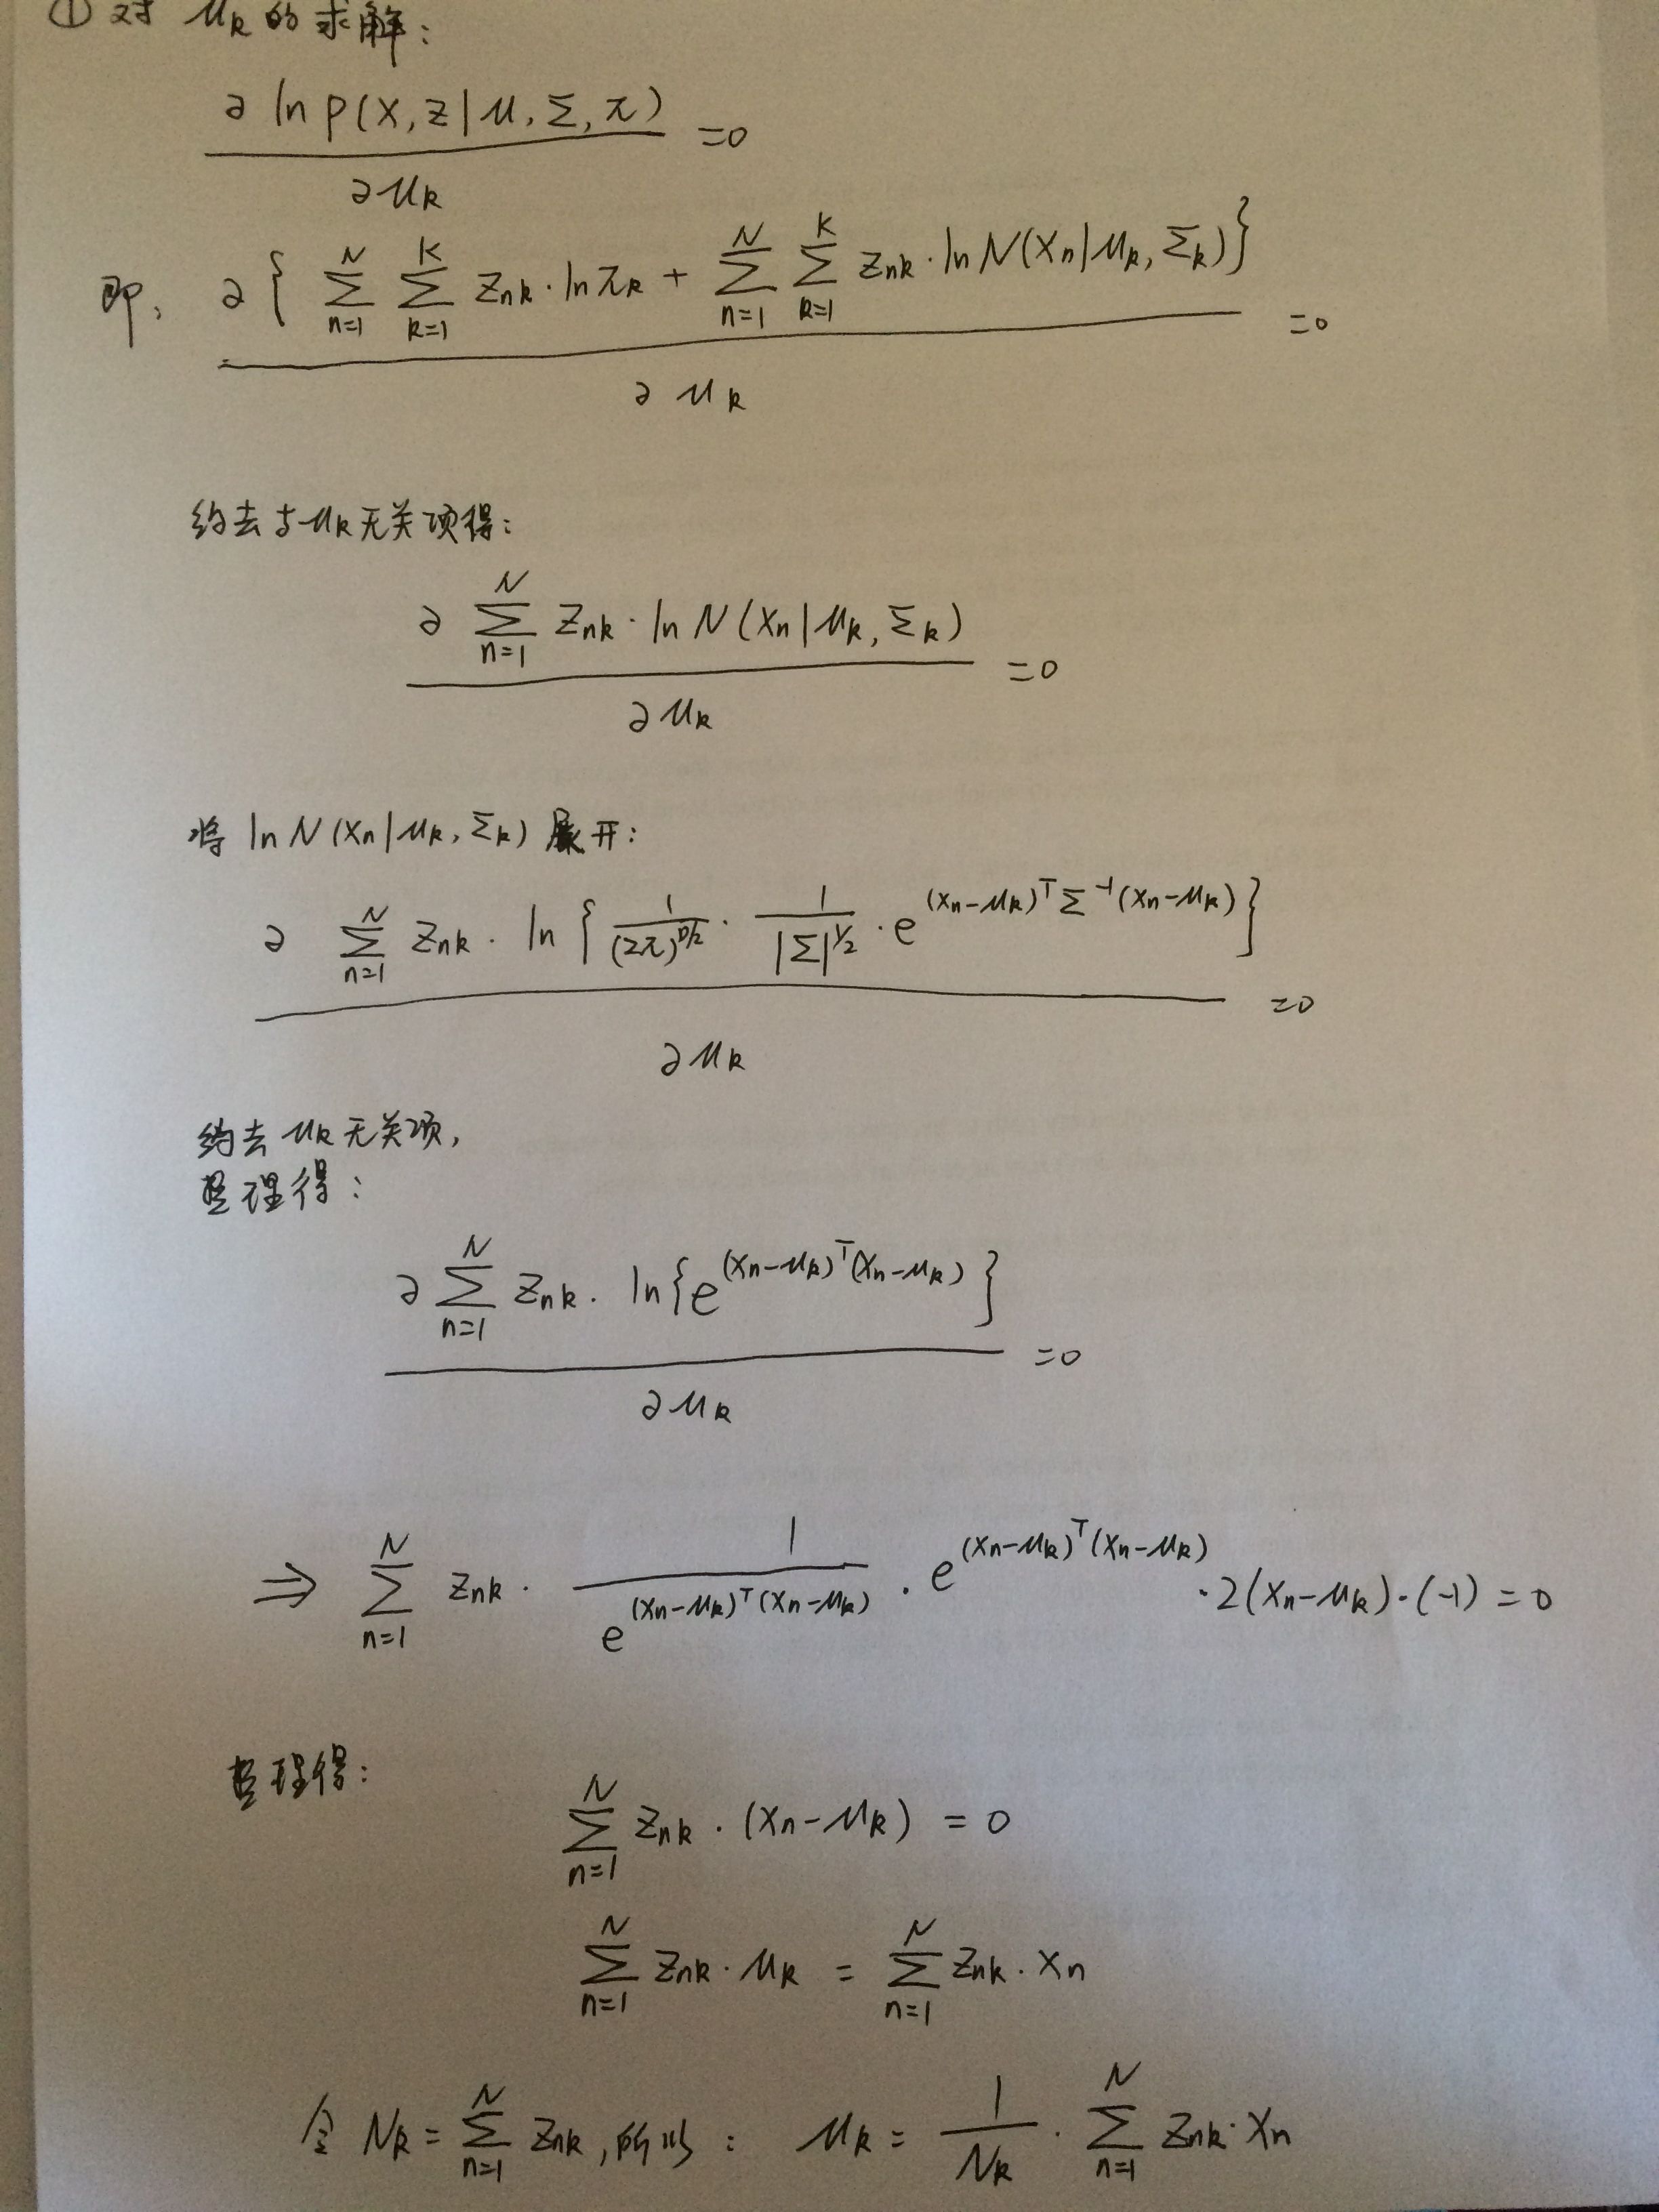 ① 对 μk 的求解:
∂ ln p(X, Z | μ, Σ, π) / ∂μk = 0
即, ∂ { Σ_{n=1}^{N} Σ_{k=1}^{K} Znk · ln πk + Σ_{n=1}^{N} Σ_{k=1}^{K} Znk · ln N(Xn | μk, Σk) } / ∂μk = 0
约去与 μk 无关项得:
∂ Σ_{n=1}^{N} Znk · ln N(Xn | μk, Σk) / ∂μk = 0
将 ln N(Xn | μk, Σk) 展开:
∂ Σ_{n=1}^{N} Znk · ln { 1/(2π)^{D/2} · 1/|Σ|^{1/2} · e^{(Xn-μk)^T Σ^{-1} (Xn-μk)} } / ∂μk = 0
约去 μk 无关项,
整理得:
∂ Σ_{n=1}^{N} Znk · ln{ e^{(Xn-μk)^T (Xn-μk)} } / ∂μk = 0
⇒ Σ_{n=1}^{N} Znk · 1/e^{(Xn-μk)^T (Xn-μk)} · e^{(Xn-μk)^T (Xn-μk)} · 2(Xn-μk) · (-1) = 0
整理得:
Σ_{n=1}^{N} Znk · (Xn-μk) = 0
Σ_{n=1}^{N} Znk · μk = Σ_{n=1}^{N} Znk · Xn
令 Nk = Σ_{n=1}^{N} Znk, 所以: μk = 1/Nk · Σ_{n=1}^{N} Znk · Xn